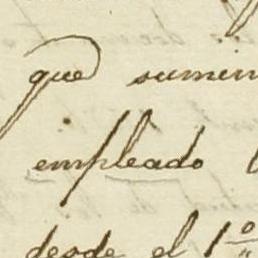 que
empleado
desde el 1º